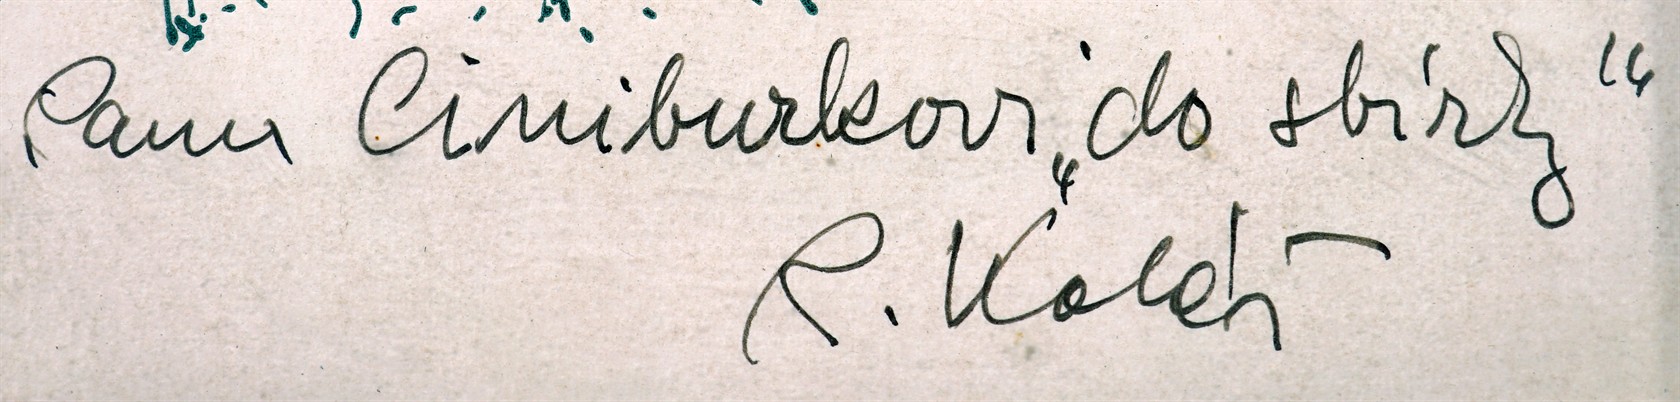 Panu Ciniburkovi „do sbírky“
R. Kolář